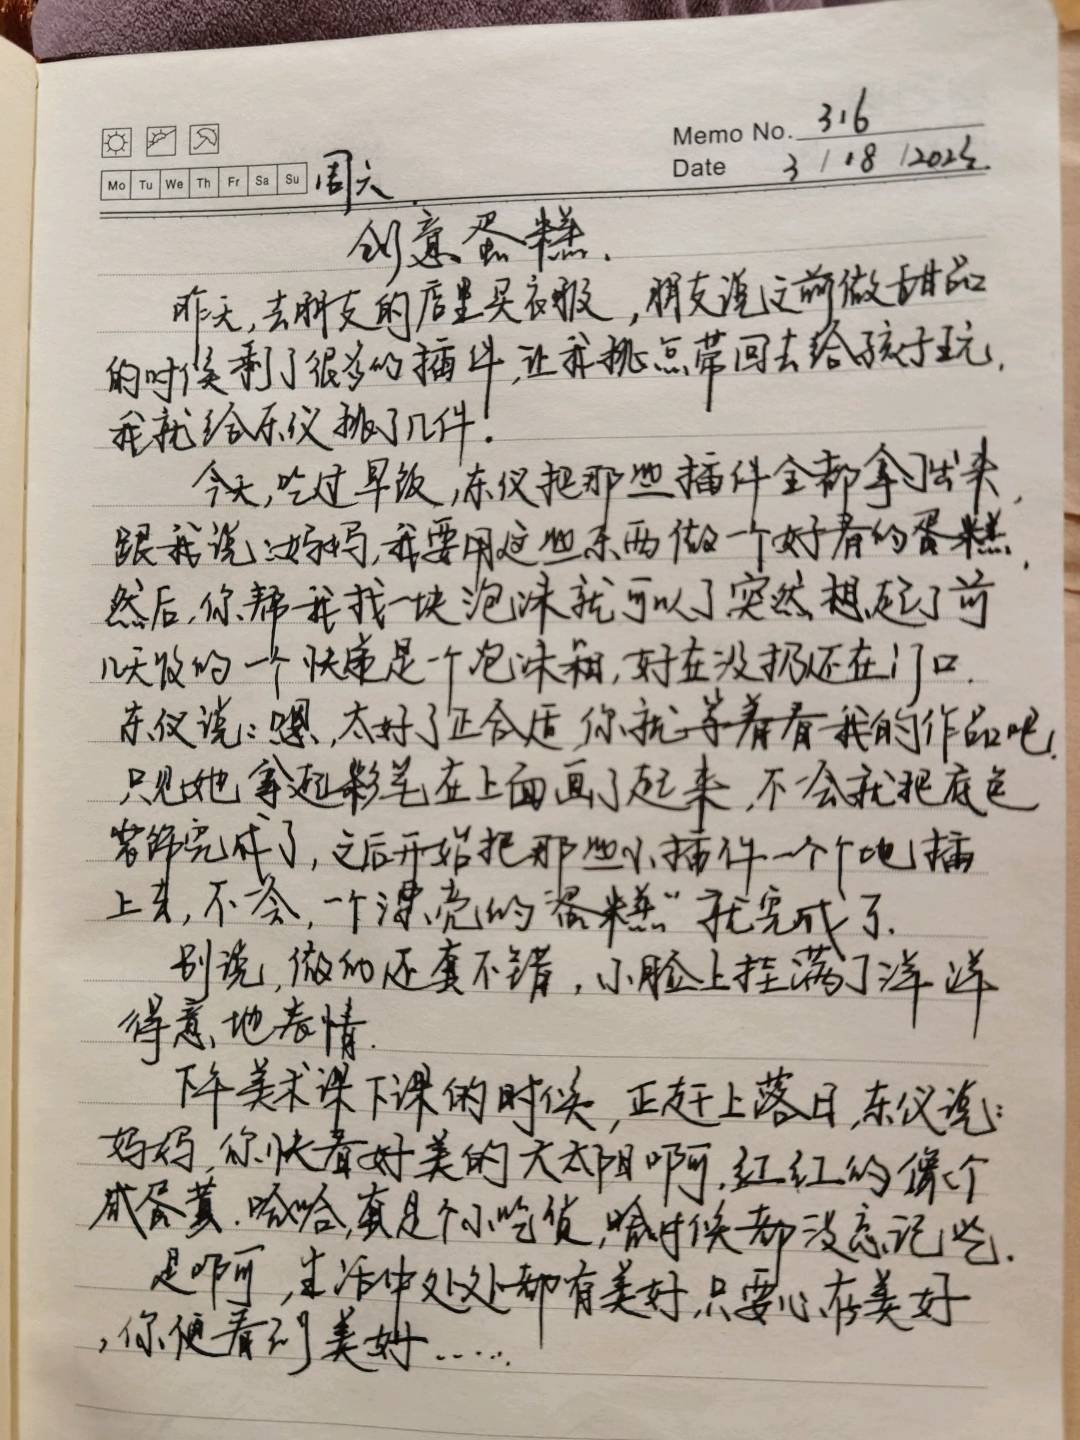 Memo No. 316
Mo Tu We Th Fr Sa Su 周六.
Date 3/18/202
创意蛋糕.
昨天,去朋友的店里买衣服,朋友说之前做甜品
的时候剩了很多的插件,让我挑点带回去给孩子玩,
我就给东仪挑了几件!
今天,吃过早饭,东仪把那些插件全都拿了出来,
跟我说:妈妈,我要用这些东西做一个好看的蛋糕,
然后,你帮我找一块泡沫就可以了突然想起了前
几天收的一个快递是一个泡沫箱,好在没扔还在门口.
东仪说:嗯,太好了正合适,你就等着看我的作品吧.
只见她拿起彩笔在上面画了起来,不一会就把底色
装饰完成了,之后开始把那些小插件一个个地插
上去,不一会,一个漂亮的“蛋糕”就完成了.
别说,做的还真不错,小脸上挂满了洋洋
得意地表情.
下午美术课下课的时候,正赶上落日,东仪说:
妈妈,你快看好美的大太阳啊,红红的像个
咸蛋黄.哈哈,真是个小吃货,啥时候都没忘记吃.
是啊,生活中处处都有美好,只要心存美好
,你便看到美好......